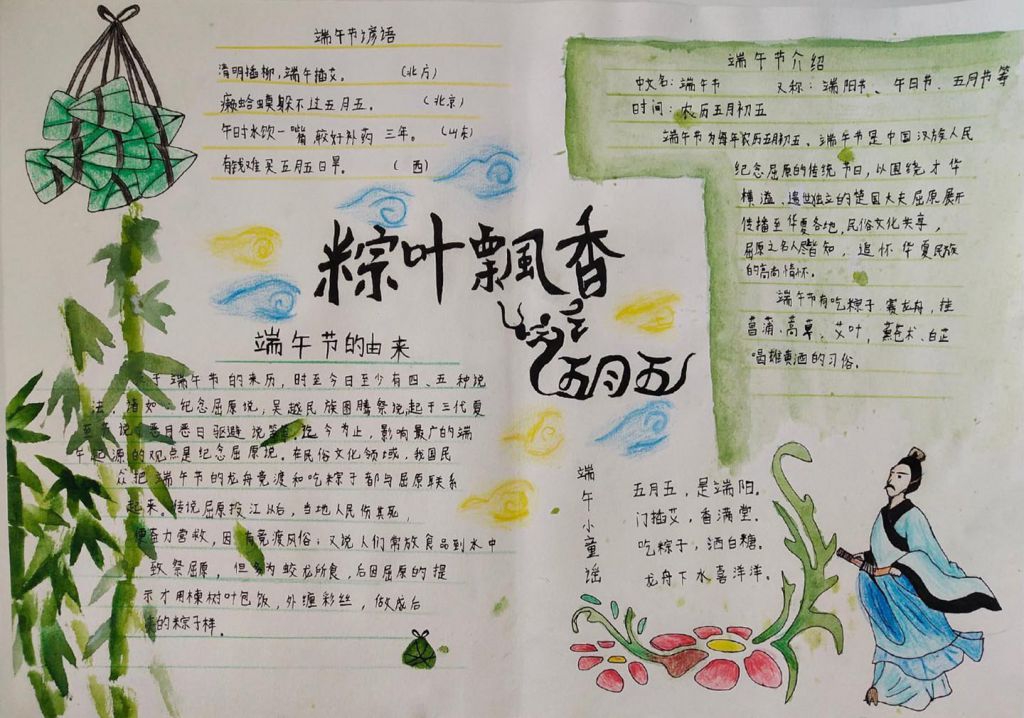 端午节谚语
清明插柳,端午插艾。 (北方)
癞蛤蟆躲不过五月五。 (北京)
午日水饮一嘴 较好补药 三年。 (山东)
有钱难买五月五日旱。 (西)
粽叶飘香
五月五
端午节的由来
于端午节的来历,时至今日至少有四、五种说
法,诸如:纪念屈原说,吴越民族图腾祭说,起于三代夏
至 说,恶月恶日驱避说等。迄今为止,影响最广的端
午起源的观点是纪念屈原说。在民俗文化领域,我国民
众把端午节的龙舟竞渡和吃粽子都与屈原联系
起来。传说屈原投江以后,当地人民伤其死,
便奋力营救,因有竞渡风俗;又说人们常放食品到水中
致祭屈原,但多为蛟龙所食,后因屈原的提
示才用楝树叶包饭,外缠彩丝,做成后
来的粽子样。
端午节介绍
中文名:端午节 又称:端阳节、午日节、五月节等
时间:农历五月初五
端午节为每年农历五月初五、端午节是中国汉族人民
纪念屈原的传统节日,以围绕才华
横溢、遗世独立的楚国大夫屈原展开
传播至华夏各地,民俗文化共享,
屈原之名人尽皆知,追怀华夏民族
的高尚情怀。
端午节有吃粽子 赛龙舟,挂
菖蒲、蒿草、艾叶,薰苍术、白芷
喝雄黄酒的习俗。
端午小童谣
五月五,是端阳。
门插艾,香满堂。
吃粽子,洒白糖。
龙舟下水喜洋洋。